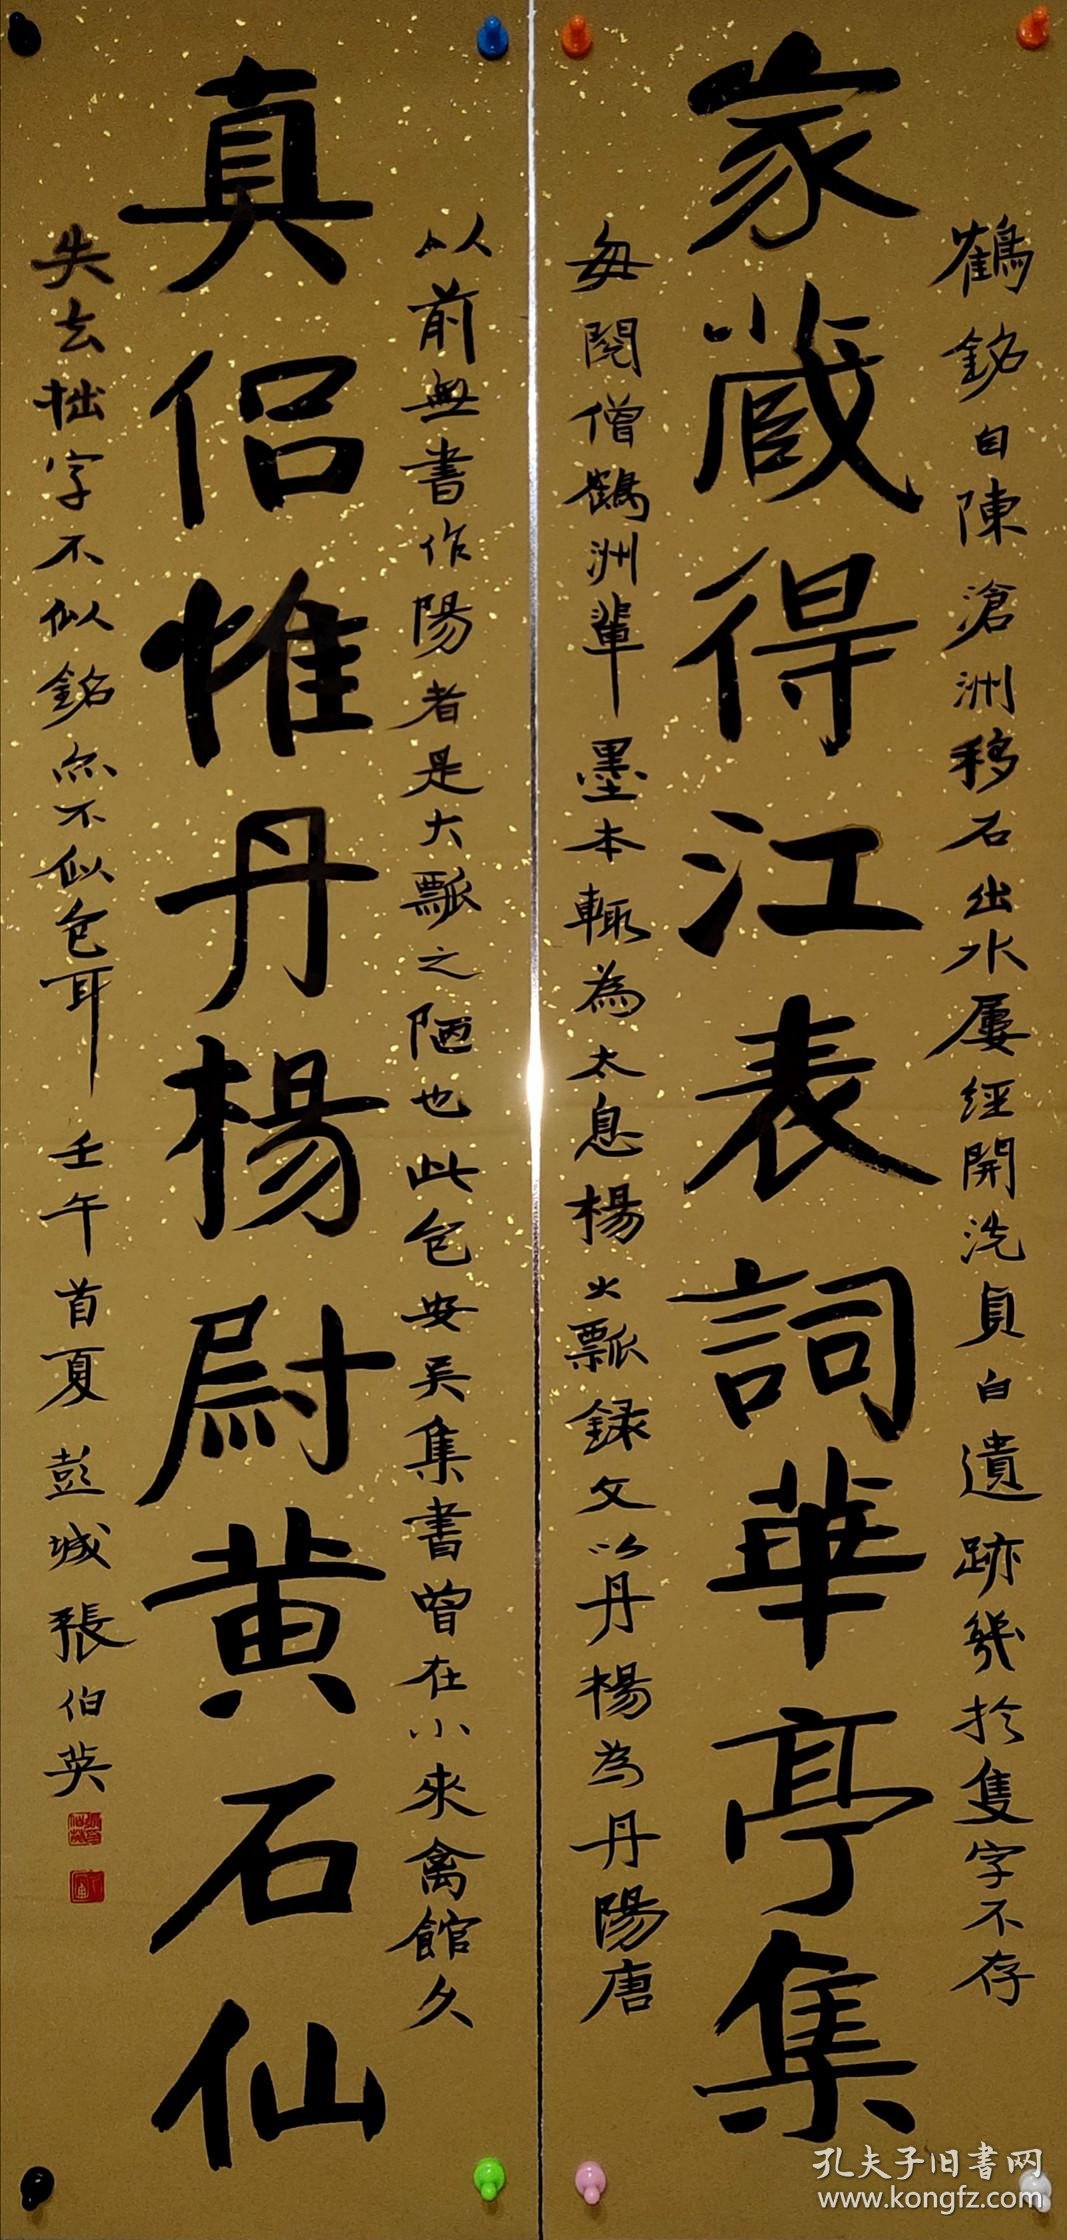 鶴銘自陳滄洲移石出水屢經開洗貞白遺跡幾於隻字不存
家藏得江表詞華亭集
每閱僧鶴洲輩墨本輒為太息楊大瓢録文以丹楊為丹陽唐
以前無書作陽者是大瓢之陋也此包安吳集書曾在小來禽館久
真侶惟丹楊尉黃石仙
失去拙字不似銘亦不似包耳 壬午首夏彭城張伯英
孔夫子旧书网
www.kongfz.com